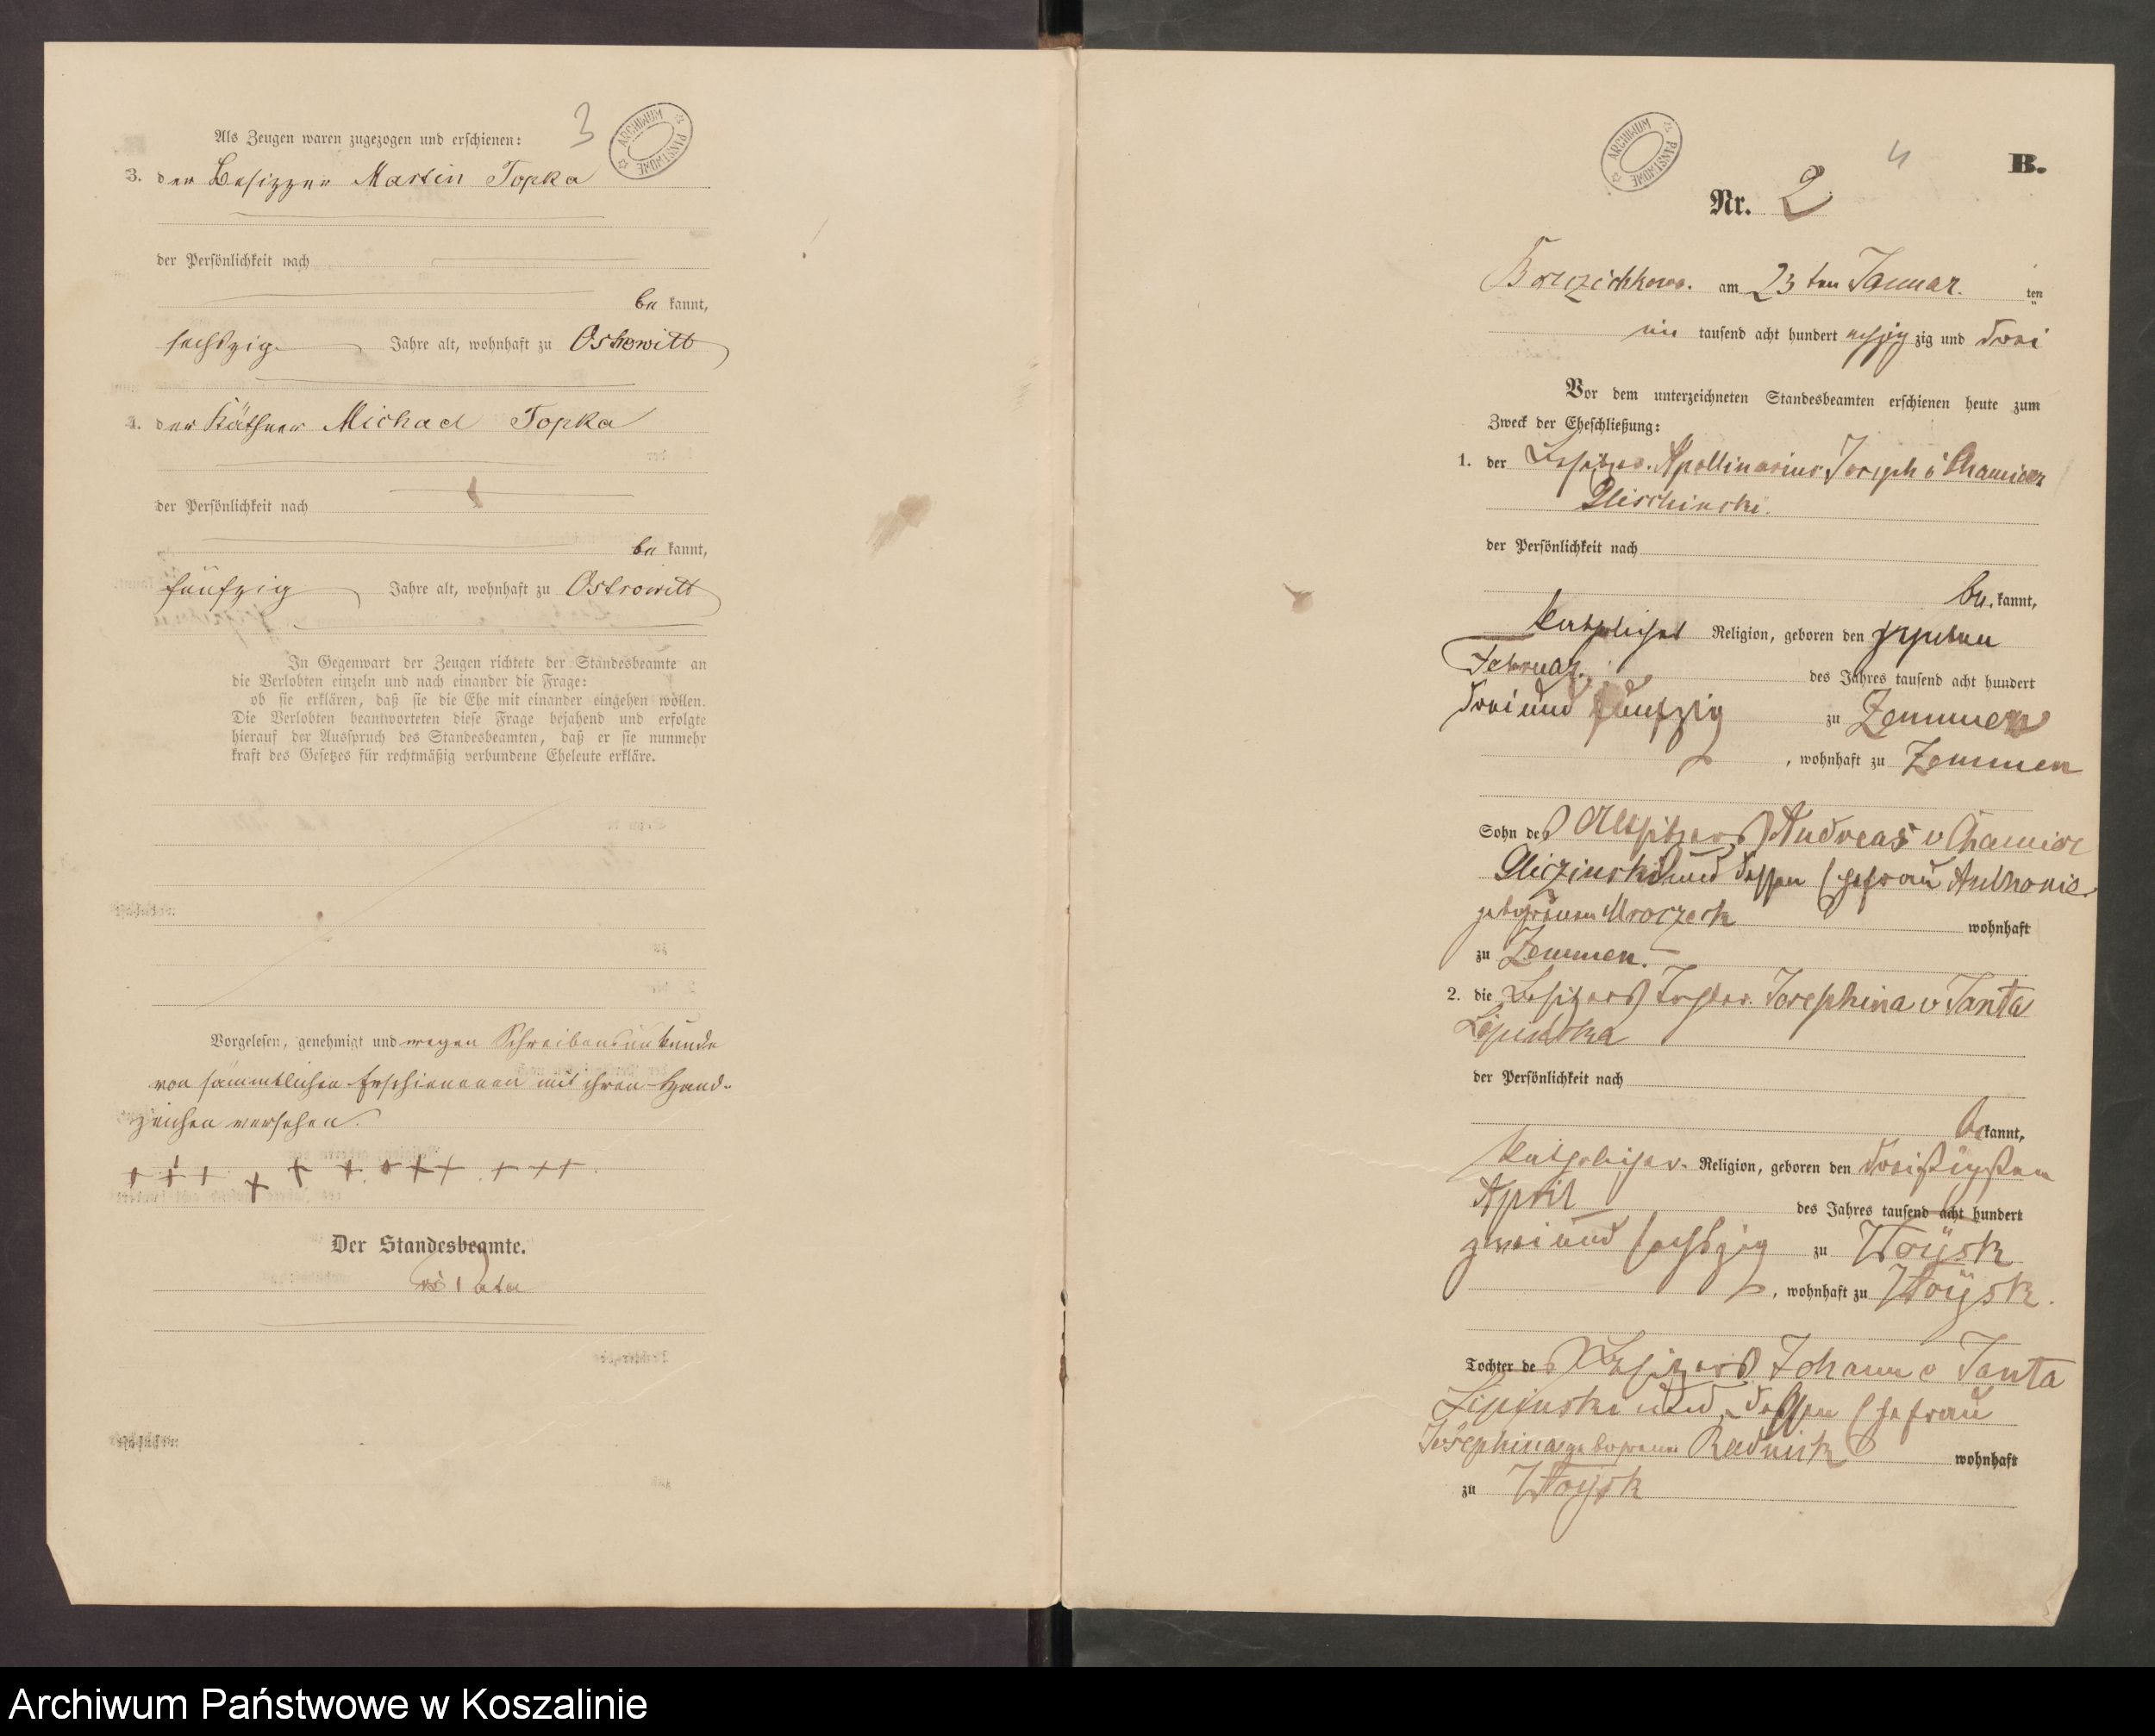 3
ARCHIWUM PAŃSTWOWE
Als Zeugen waren zugezogen und erschienen:
3. der Besitzer Martin Topka
der Persönlichkeit nach
be kannt,
sechszig Jahre alt, wohnhaft zu Ostrowitt
4. der Käthner Michael Topka
der Persönlichkeit nach
be kannt,
fünfzig Jahre alt, wohnhaft zu Ostrowitt
In Gegenwart der Zeugen richtete der Standesbeamte an
die Verlobten einzeln und nach einander die Frage:
ob sie erklären, daß sie die Ehe mit einander eingehen wollen.
Die Verlobten beantworteten diese Frage bejahend und erfolgte
hierauf der Ausspruch des Standesbeamten, daß er sie nunmehr
kraft des Gesetzes für rechtmäßig verbundene Eheleute erkläre.
Vorgelesen, genehmigt und wegen Schreibensunkunde
von sämmtlichen Erschienenen mit ihren Hand-
zeichen versehen.
+ + + + + + + + + + + +
Der Standesbeamte.
ARCHIWUM PAŃSTWOWE
4
B.
Nr. 2
am 23ten Januar. ten
ein tausend acht hundert achtzig zig und drei
Vor dem unterzeichneten Standesbeamten erschienen heute zum
Zweck der Eheschließung:
1. der Besitzer Apollinarius Joseph v Chamier
Glischinski.
der Persönlichkeit nach
be kannt,
katholischer Religion, geboren den
Februar des Jahres tausend acht hundert
drei und fünfzig zu Zemmen
, wohnhaft zu Zemmen
Sohn des Altsitzers Andreas v Chamier
Gliczinski und dessen Ehefrau Anthonie
geborenen Mroczeck wohnhaft
zu Zemmen.
2. die Besitzers Tochter Josephina v Janta
Lipinska
der Persönlichkeit nach
be kannt,
katholischer Religion, geboren den dreißigsten
April des Jahres tausend acht hundert
zwei und sechszig zu Woysk
, wohnhaft zu Woysk.
Tochter des Besitzers Johann v Janta
Lipinski und dessen Ehefrau
Josephina geborenen Rudnick wohnhaft
zu Woysk
Archiwum Państwowe w Koszalinie